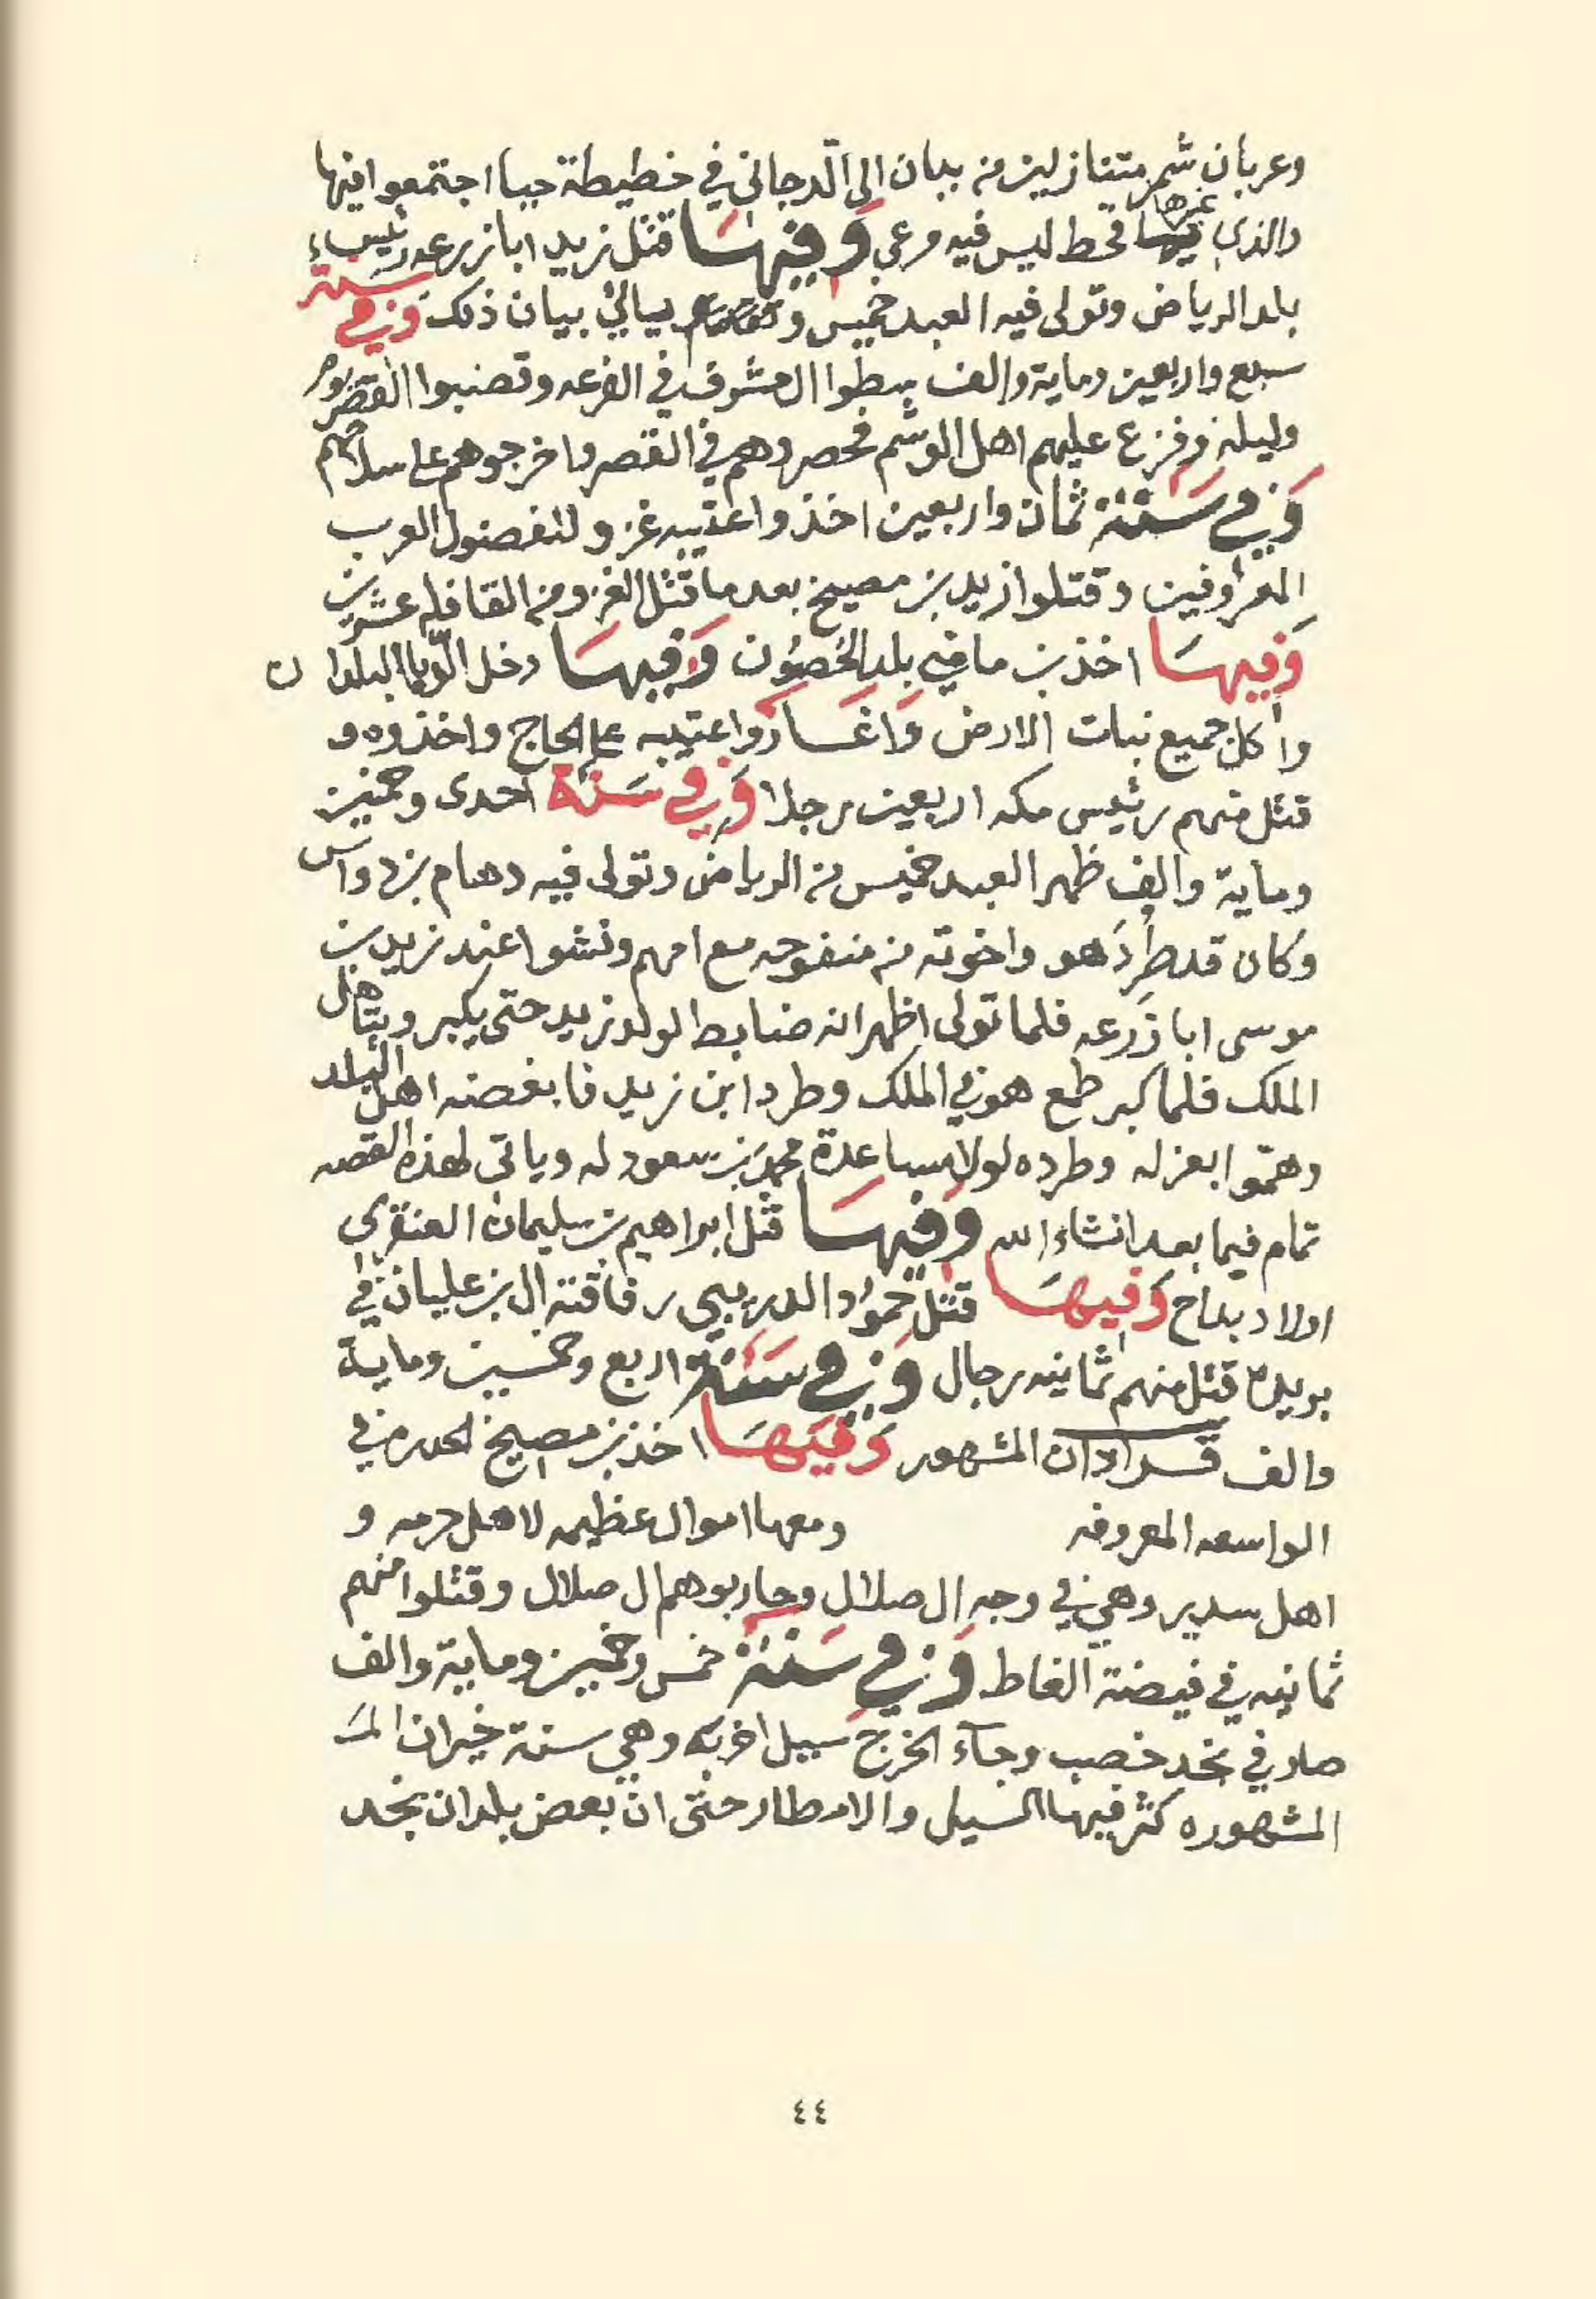 وعربان شمر متنازلين من بيان الى الدجاني في خطيطة حيا اجتمعوا فيها
والذي غيرها قحط ليس فيه مرعى وَفِيهَا قتل زيد ابا زرعه رئيس
بلد الرياض وتولى فيه العبد خميس و بيان ذلك وَفي سنة
سبع واربعين وماية والف سطوا ال مشرف في الفرعه وتصنبوا القصر يوم
وليله وفزع عليهم اهل الوشم فحصروهم في القصر واخرجوهم على سلاحهم
وَفي سَنَة ثمان واربعين اخذوا عتيبه غزو لفضول العرب
المعروفين وقتلوا زيد بن مصيخ بعد ما قتل الغزو من القافله عشرين
وَفِيهَا اخذ بن ماضي بلد الحصُون وَفِيهَا دخل الدبا البلدان
واكل جميع نبات الارض وَاغَارَوا عتيبه على الحاج واخذوه و
قتل منهم رئيس مكه اربعين رجلا وَفي سَنَة احدى وخمسين
وماية والف ظهر العبد خميس من الرياض وتولى فيه دهام بن دواس
وكان قد طرد هو واخوته من منفوحه مع امهم ونشوا عند زيد بن
موسى ابا زرعه فلما تولى اظهر انه ضابط لولد زيد حتى يكبر ويتاهل
الملك فلما كبر طمع هو في الملك وطرد ابن زيد فابغضه اهل البلد
وهمّوا بعزله وطرده لولا مساعدة محمد بن سعود له وياتى لهذه القصه
تمام فيما بعد انشاء الله وَفِيهَا قتل ابراهيم بن سليمان العنقرى
اولاد بداح وَفِيهَا قتل حمُود الدريبي رفاقته ال بن عليان في
بريده قتل منهم ثمانيه رجال وَفي سَنَة اربع وخمسين وماية
والف المشهور وَفِيهَا اخذ بن مصيخ الحدره في
الواسعه المعروفه ومعها اموال عظيمه لاهل حرمه و
اهل سدير وهي في وجه ال صلال وحاربوهم ال صلال وقتلوا منهم
ثمانيه في فيضة الغاط وَفي سَنَة خمس وخمسين وماية والف
صار في نجد خصب وجاء الخرج سيل اخربه وهي سنة خيران
المشهوره كثر فيها السيل والامطار حتى ان بعض بلدان نجد
٤٤